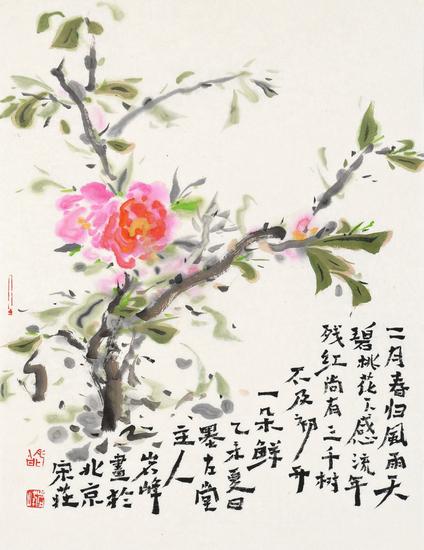 二月春归风雨天
碧桃花下感流年
残红尚有三千树
不及初开
一朵鲜
乙未夏日
主人
岩峰
畫於
北京
宋莊